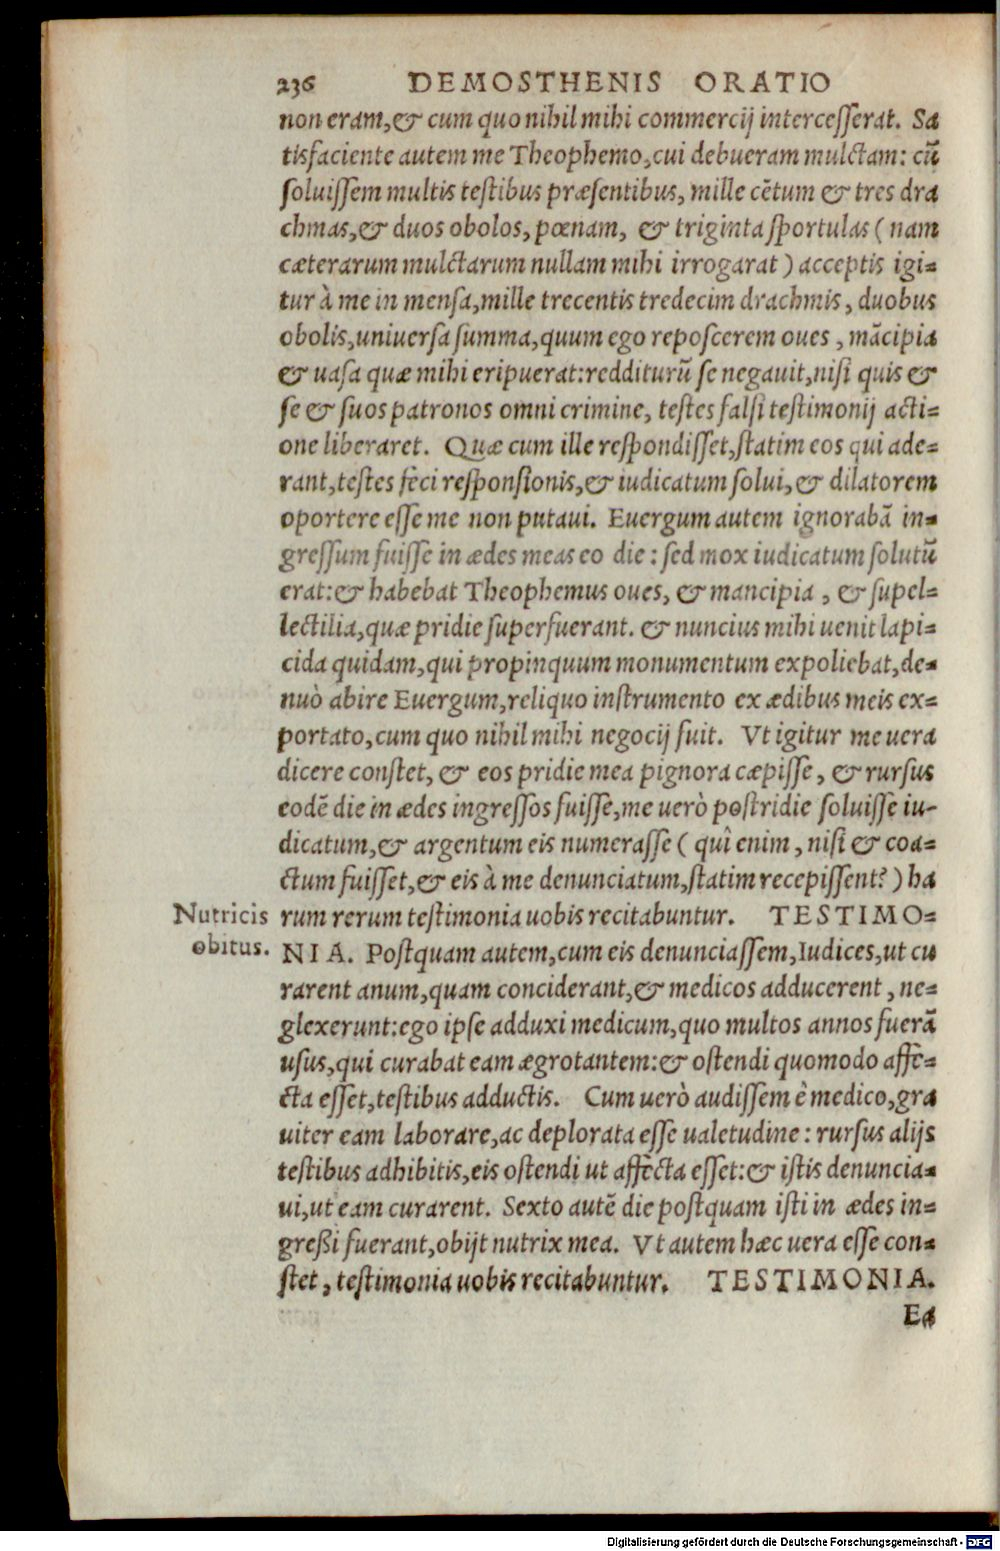 236 DEMOSTHENIS ORATIO
non eram,& cum quo nihil mihi commercij intercesserat. Sa
tisfaciente autem me Theophemo,cui debueram mulctam: cū
soluissem multis testibus præsentibus, mille cētum & tres dra
chmas,& duos obolos, pœnam, & triginta sportulas ( nam
cæterarum mulctarum nullam mihi irrogarat ) acceptis igi=
tur à me in mensa,mille trecentis tredecim drachmis, duobus
obolis,uniuersa summa,quum ego reposcerem oues , mācipia
& uasa quæ mihi eripuerat:redditurū se negauit,nisi quis &
se & suos patronos omni crimine, testes falsi testimonij acti=
one liberaret. Quæ cum ille respondisset,statim eos qui ade=
rant,testes feci responsionis,& iudicatum solui,& dilatorem
oportere esse me non putaui. Euergum autem ignorabā in=
gressum fuisse in ædes meas eo die : sed mox iudicatum solutū
erat:& habebat Theophemus oues, & mancipia , & supel=
lectilia,quæ pridie superfuerant. & nuncius mihi uenit lapi=
cida quidam,qui propinquum monumentum expoliebat,de=
nuò abire Euergum,reliquo instrumento ex ædibus meis ex=
portato,cum quo nihil mihi negocij fuit. Vt igitur me uera
dicere constet, & eos pridie mea pignora cæpisse, & rursus
eodē die in ædes ingressos fuisse,me uerò postridie soluisse iu-
dicatum,& argentum eis numerasse ( quî enim , nisi & coa=
ctum fuisset,& eis à me denunciatum,statim recepissent? ) ha
Nutricis obitus.
rum rerum testimonia uobis recitabuntur. TESTIMO=
NIA. Postquam autem,cum eis denunciassem,Iudices,ut cu
rarent anum,quam conciderant,& medicos adducerent , ne=
glexerunt:ego ipse adduxi medicum,quo multos annos fuerā
usus,qui curabat eam ægrotantem:& ostendi quomodo affe=
cta esset,testibus adductis. Cum uerò audissem è medico,gra
uiter eam laborare,ac deplorata esse ualetudine : rursus alijs
testibus adhibitis,eis ostendi ut affecta esset:& istis denuncia=
ui,ut eam curarent. Sexto autē die postquam isti in ædes in=
greßi fuerant,obijt nutrix mea. Vt autem hæc uera esse con=
stet , testimonia uobis recitabuntur. TESTIMONIA.
Ea
Digitalisierung gefördert durch die Deutsche Forschungsgemeinschaft - DFG